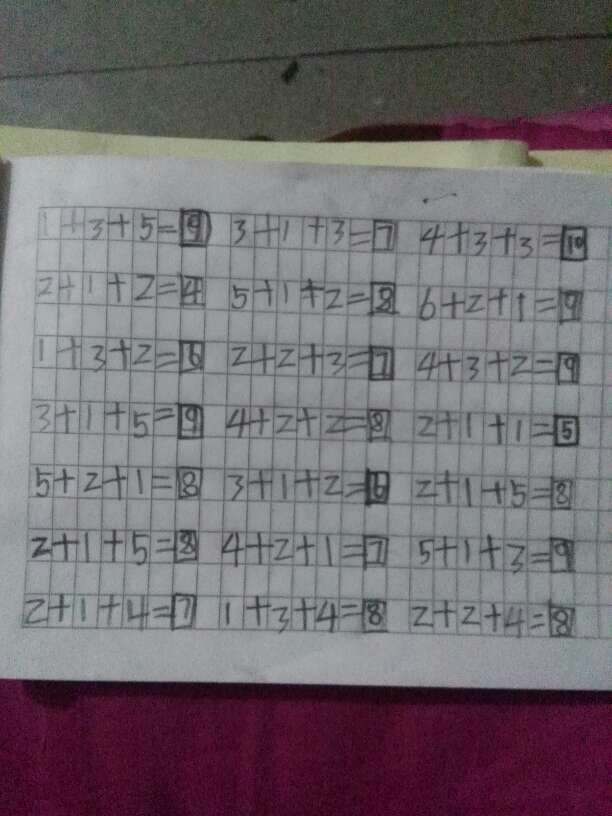 1+3+5=9 3+1+3=7 4+3+3=10
2+1+2=4 5+1+2=8 6+2+1=9
1+3+2=6 2+2+3=7 4+3+2=9
3+1+5=9 4+2+2=8 2+1+1=5
5+2+1=8 3+1+2=6 2+1+5=8
2+1+5=8 4+2+1=7 5+1+3=9
2+1+4=7 1+3+4=8 2+2+4=8